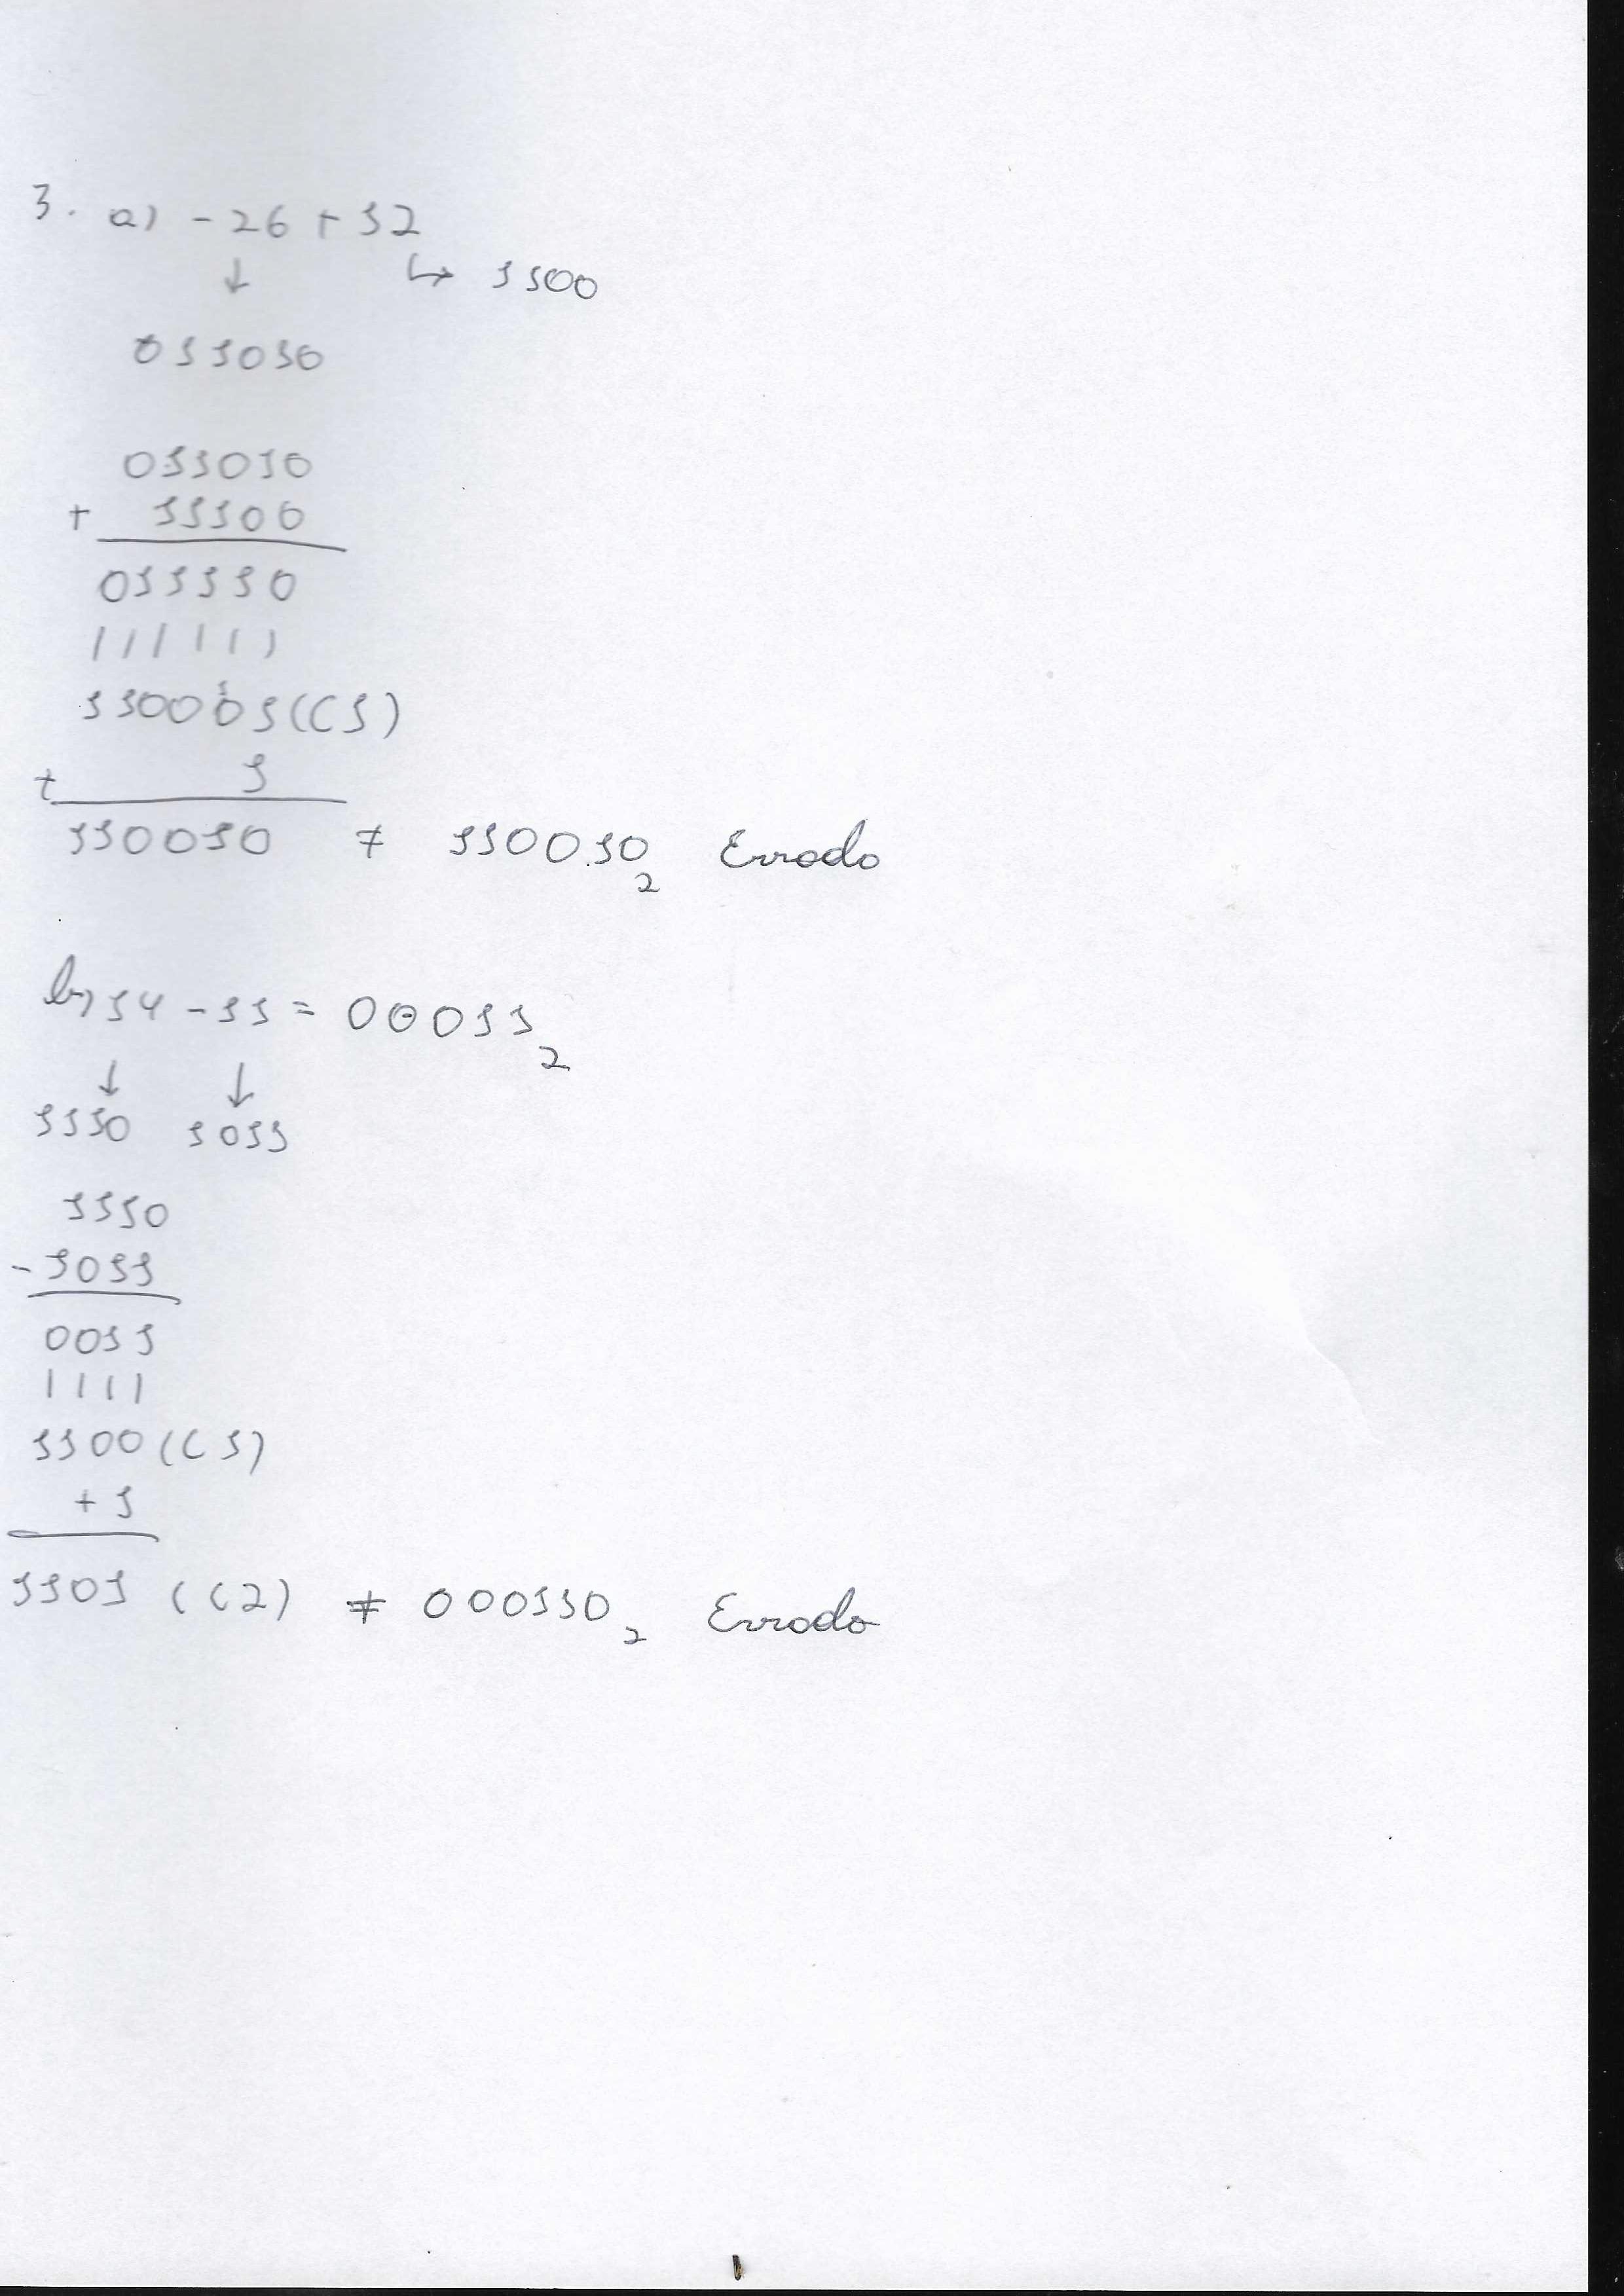 3. a) -26 + 12
↓ ↳ 1100
011010
011010
+ 11100
011110
||||||
1
110001(C1)
+ 1
110010 ≠ 110010₂ Errado
b) 14 - 11 = 00011₂
↓ ↓
1110 1011
1110
- 1011
0011
||||
1100(C1)
+ 1
1101 (C2) ≠ 000110₂ Errado